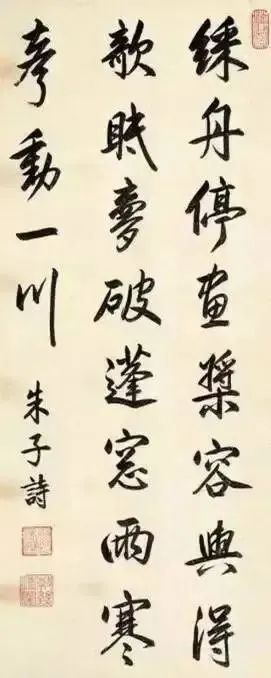 綵舟停畫槳容與得
欹眠夢破蓬窗雨寒
聲動一川
朱子詩